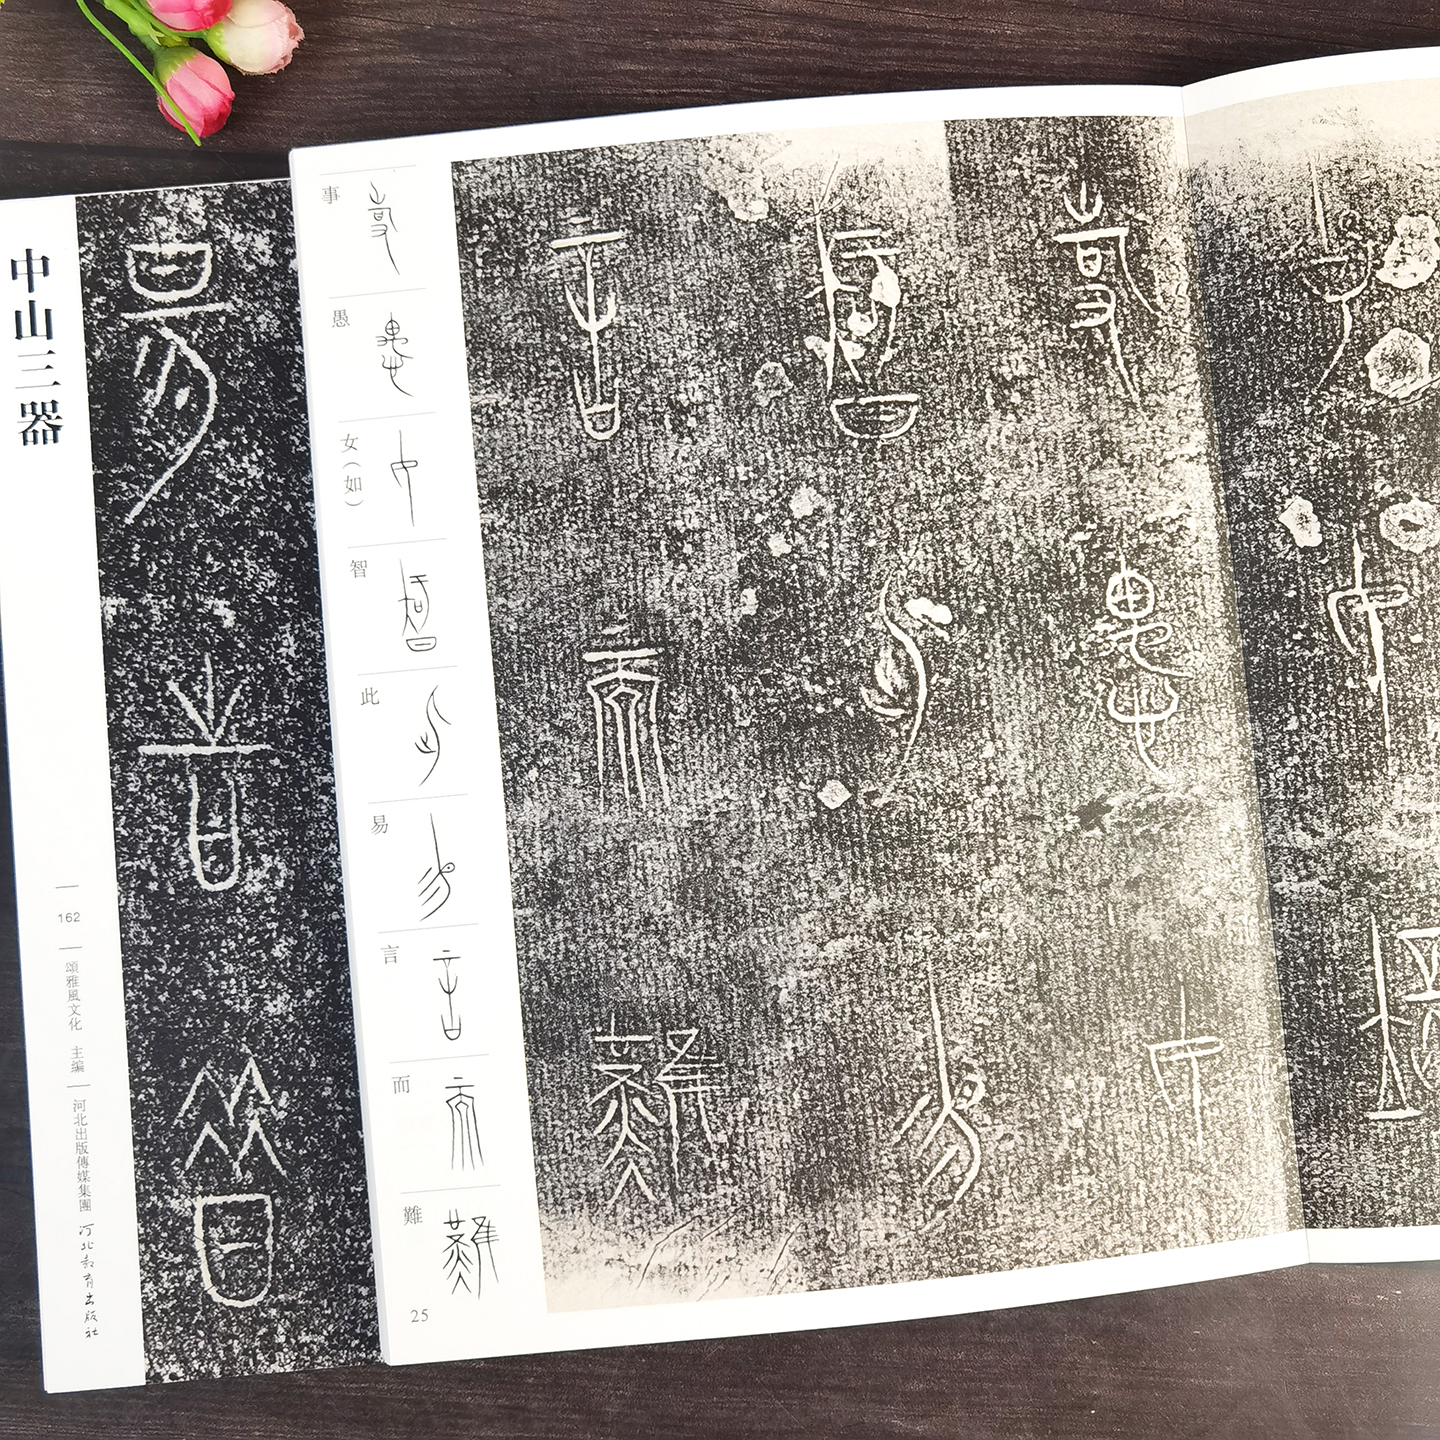 中山三器
162
頌雅風文化 主编
河北出版傳媒集團
河北教育出版社
事
愚
女（如）
智
此
易
言
而
難
25
事愚女
智此易
言而難